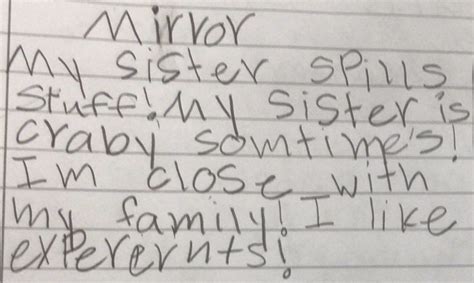 Mirror
My sister spills
stuff! My sister is
craby somtime's!
I'm close with
my family! I like
experernts!